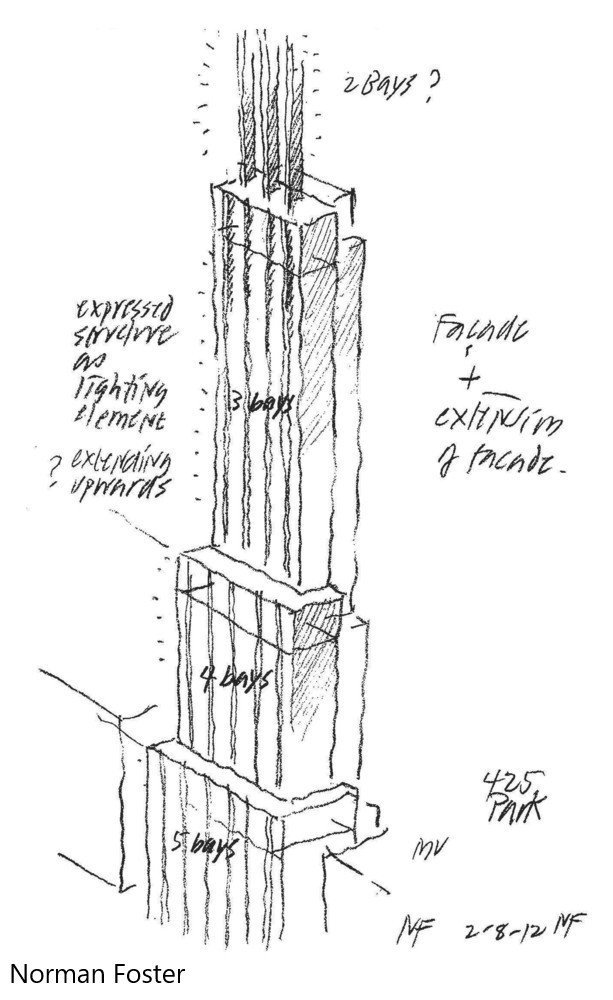 2 Bays ?
expressed
structure
as
lighting
element
? extending
upwards
3 bays
Facade
+
extension
of facade.
4 bays
5 bays
425
Park
MV
NF 2-8-12 NF
Norman Foster